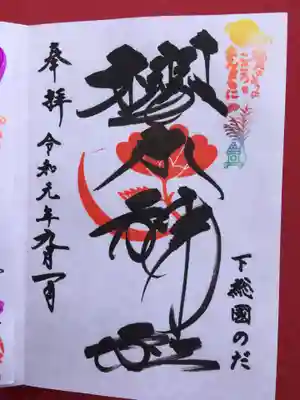 下総國のだ
櫻木神社
奉拝 令和元年九月一日